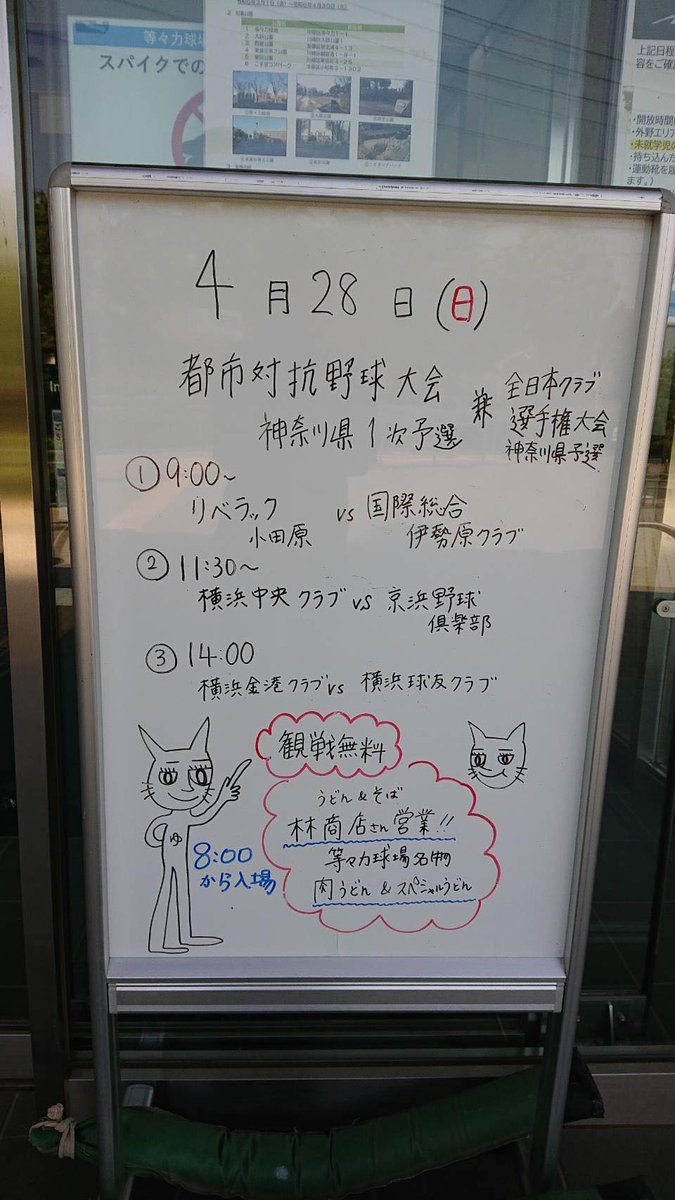 等々力球場
スパイクでの
上記日程
容をご確認
・開放時間
・外野エリア
・未就学児の
・持ち込んだ
・運動靴を履
ます。)
4月28日(日)
都市対抗野球大会
神奈川県1次予選
兼
全日本クラブ
選手権大会
神奈川県予選
① 9:00~
リベラック
小田原
vs 国際総合
伊勢原クラブ
② 11:30~
横浜中央クラブ vs 京浜野球
倶楽部
③ 14:00
横浜金港クラブ vs 横浜球友クラブ
観戦無料
ゆ
8:00
から入場
うどん&そば
林商店さん営業!!
等々力球場名物
肉うどん&スペシャルうどん